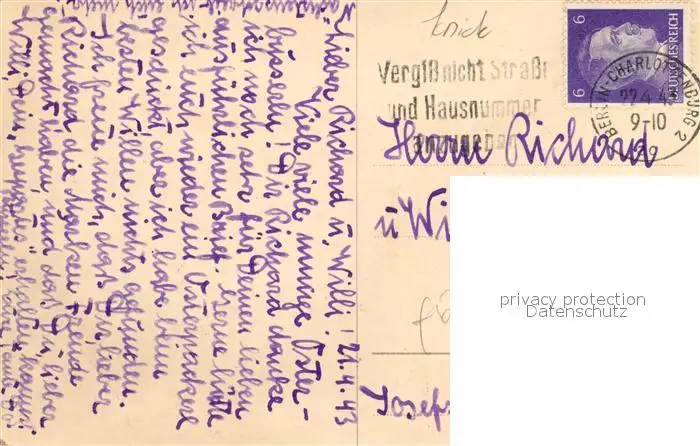 Lieber Richard u. Willi! 21.4.43
Viele viele innige Oster-
busserln! Dir Richard danke
ich noch sehr für Deinen lieben
ausführlichen Brief. Gerne hätte
ich euch wieder ein Osterpackerl
geschickt aber ich habe beim
besten Willen nichts gefunden.
Ich freue mich, dass Dir, lieber
Richard die Marken Freude
gemacht haben, und daß Du, lieber
Willi, Dein erhalten
Vergiß nicht Straße
und Hausnummer
anzugeben
6
6
DEUTSCHES REICH
BERLIN-CHARLOTTENBURG 2
22.4.43
9-10
Herrn Richard
u Wi
Josefs
privacy protection
Datenschutz